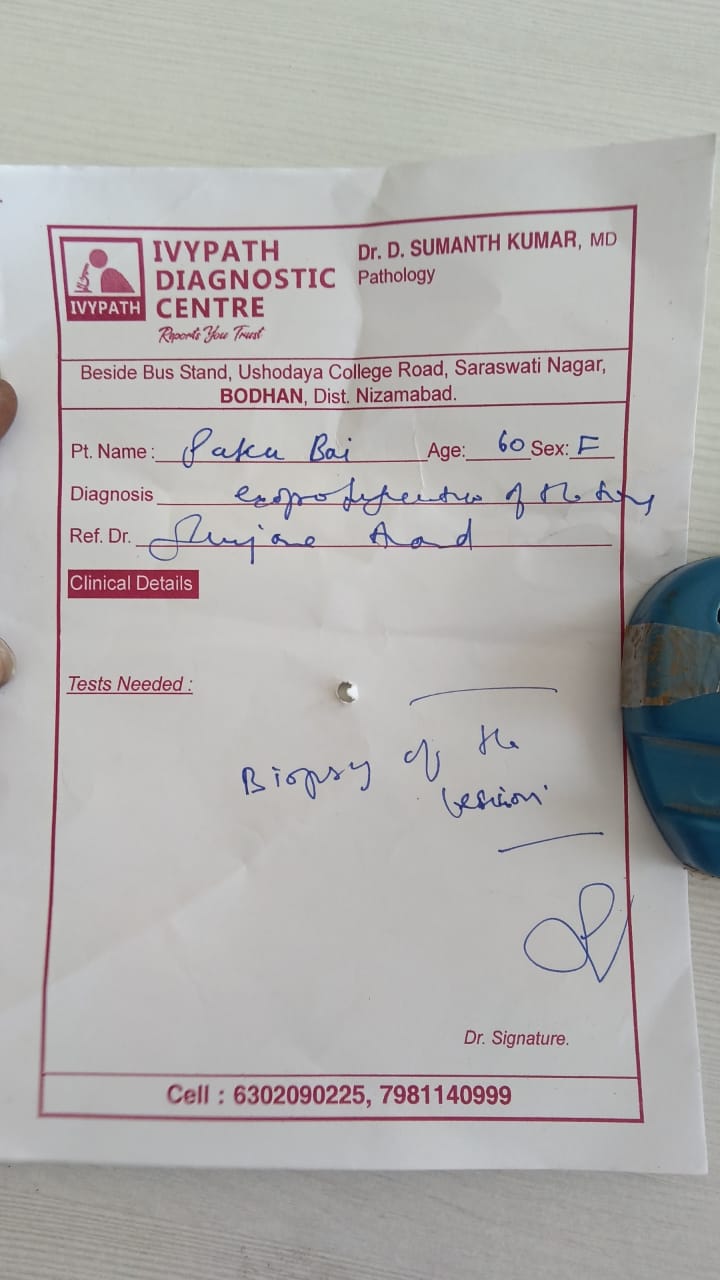 IVYPATH
DIAGNOSTIC
CENTRE
Reports You Trust
IVYPATH
Dr. D. SUMANTH KUMAR, MD
Pathology
Beside Bus Stand, Ushodaya College Road, Saraswati Nagar,
BODHAN, Dist. Nizamabad.
Pt. Name : Bai Age: 60 Sex: F
Diagnosis of the
Ref. Dr.
Clinical Details
Tests Needed :
Biopsy of the
lesion
Dr. Signature.
Cell : 6302090225, 7981140999